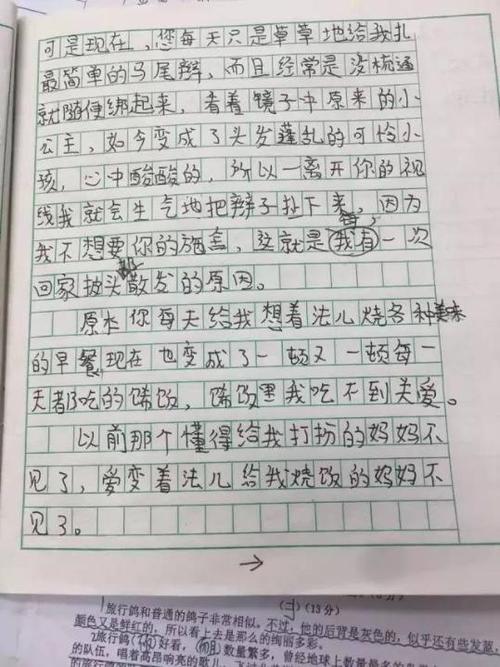 可是现在，您每天只是草草地给我扎
最简单的马尾辫，而且经常是没梳通
就随便绑起来，看着镜子中原来的小
公主，如今变成了头发蓬乱的可怜小
孩，心中酸酸的，所以一离开你的视
线我就会生气地把辫子拉下来，因为
我不想要你的施舍，这就是我有每一次
回家披头散发的原因。
原本你每天给我想着法儿烧各种美味
的早餐现在也变成了一顿又一顿每一
天都吃的馊饭，馊饭里我吃不到关爱。
以前那个懂得给我打扮的妈妈不
见了，爱变着法儿给我烧饭的妈妈不
见了。
→
(二)(13分)
1旅行鸽和普通的鸽子非常相似。不过，他的后背是灰色的，似乎还有些发蓝
颜色又是鲜红的，所以看上去是那么的绚丽多彩。
2旅行鸽 好看，(而且)数量繁多，曾经地球上数量最多的
的队伍，唱着高昂响亮的歌儿，